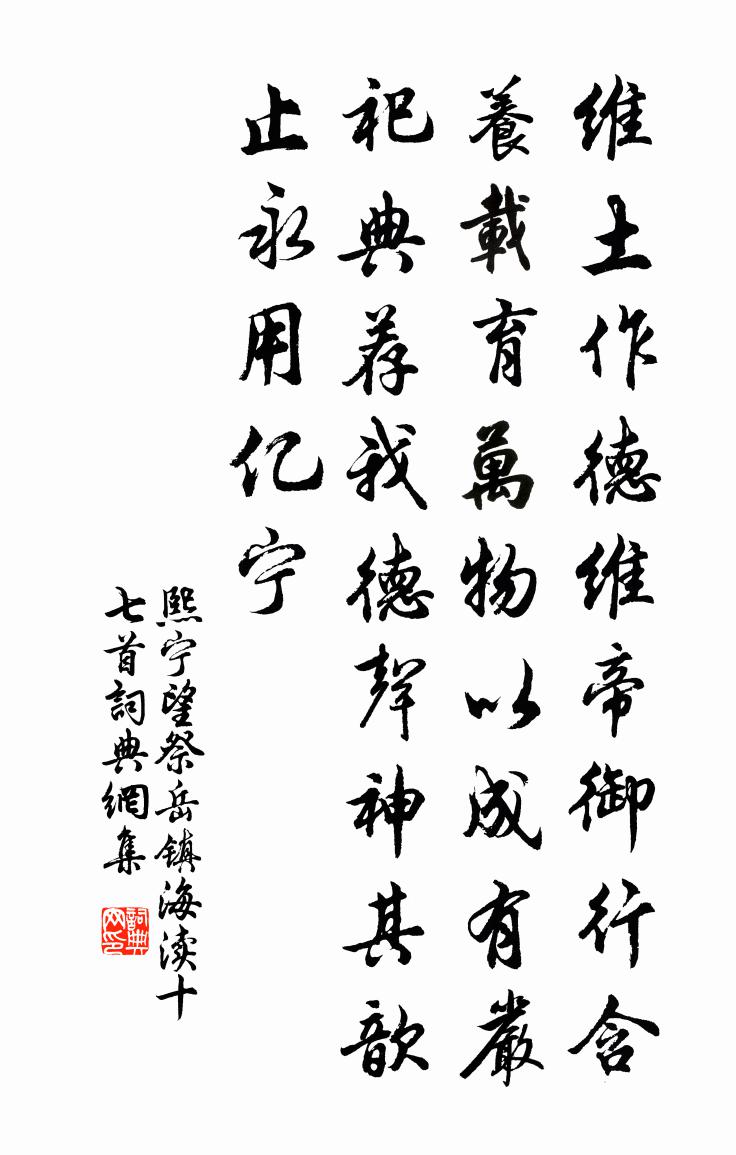 維土作德維帝御行含
養載育萬物以成有嚴
祀典荐我德聲神其歆
止永用亿宁
熙宁望祭岳镇海渎十
七首詞典網集
詞典网印